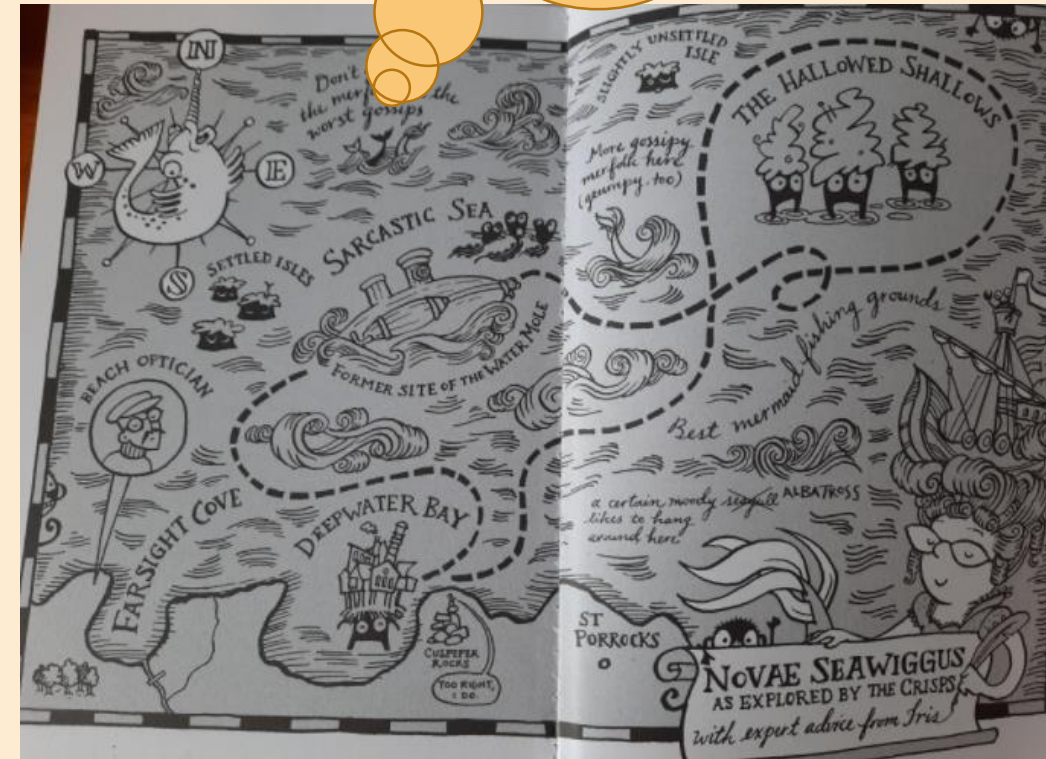 N
W
E
S
Don't
the mer the
worst gossips
SLIGHTLY UNSETTLED
ISLE
THE HALLOWED SHALLOWS
More gossipy
merfolk here
(grumpy, too)
SARCASTIC SEA
SETTLED ISLES
FORMER SITE OF THE WATER MOLE
BEACH OPTICIAN
Best mermaid fishing grounds
FARSIGHT COVE
DEEPWATER BAY
a certain moody seagull ALBATROSS
likes to hang
around here
CULPEPER
ROCKS
TOO RIGHT,
I DO.
ST
PORROCKS
NOVAE SEAWIGGUS
AS EXPLORED BY THE CRISPS
with expert advice from Iris